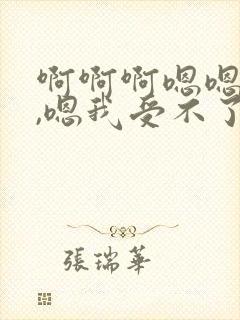 啊啊啊嗯嗯
,嗯我受不了
張瑞華